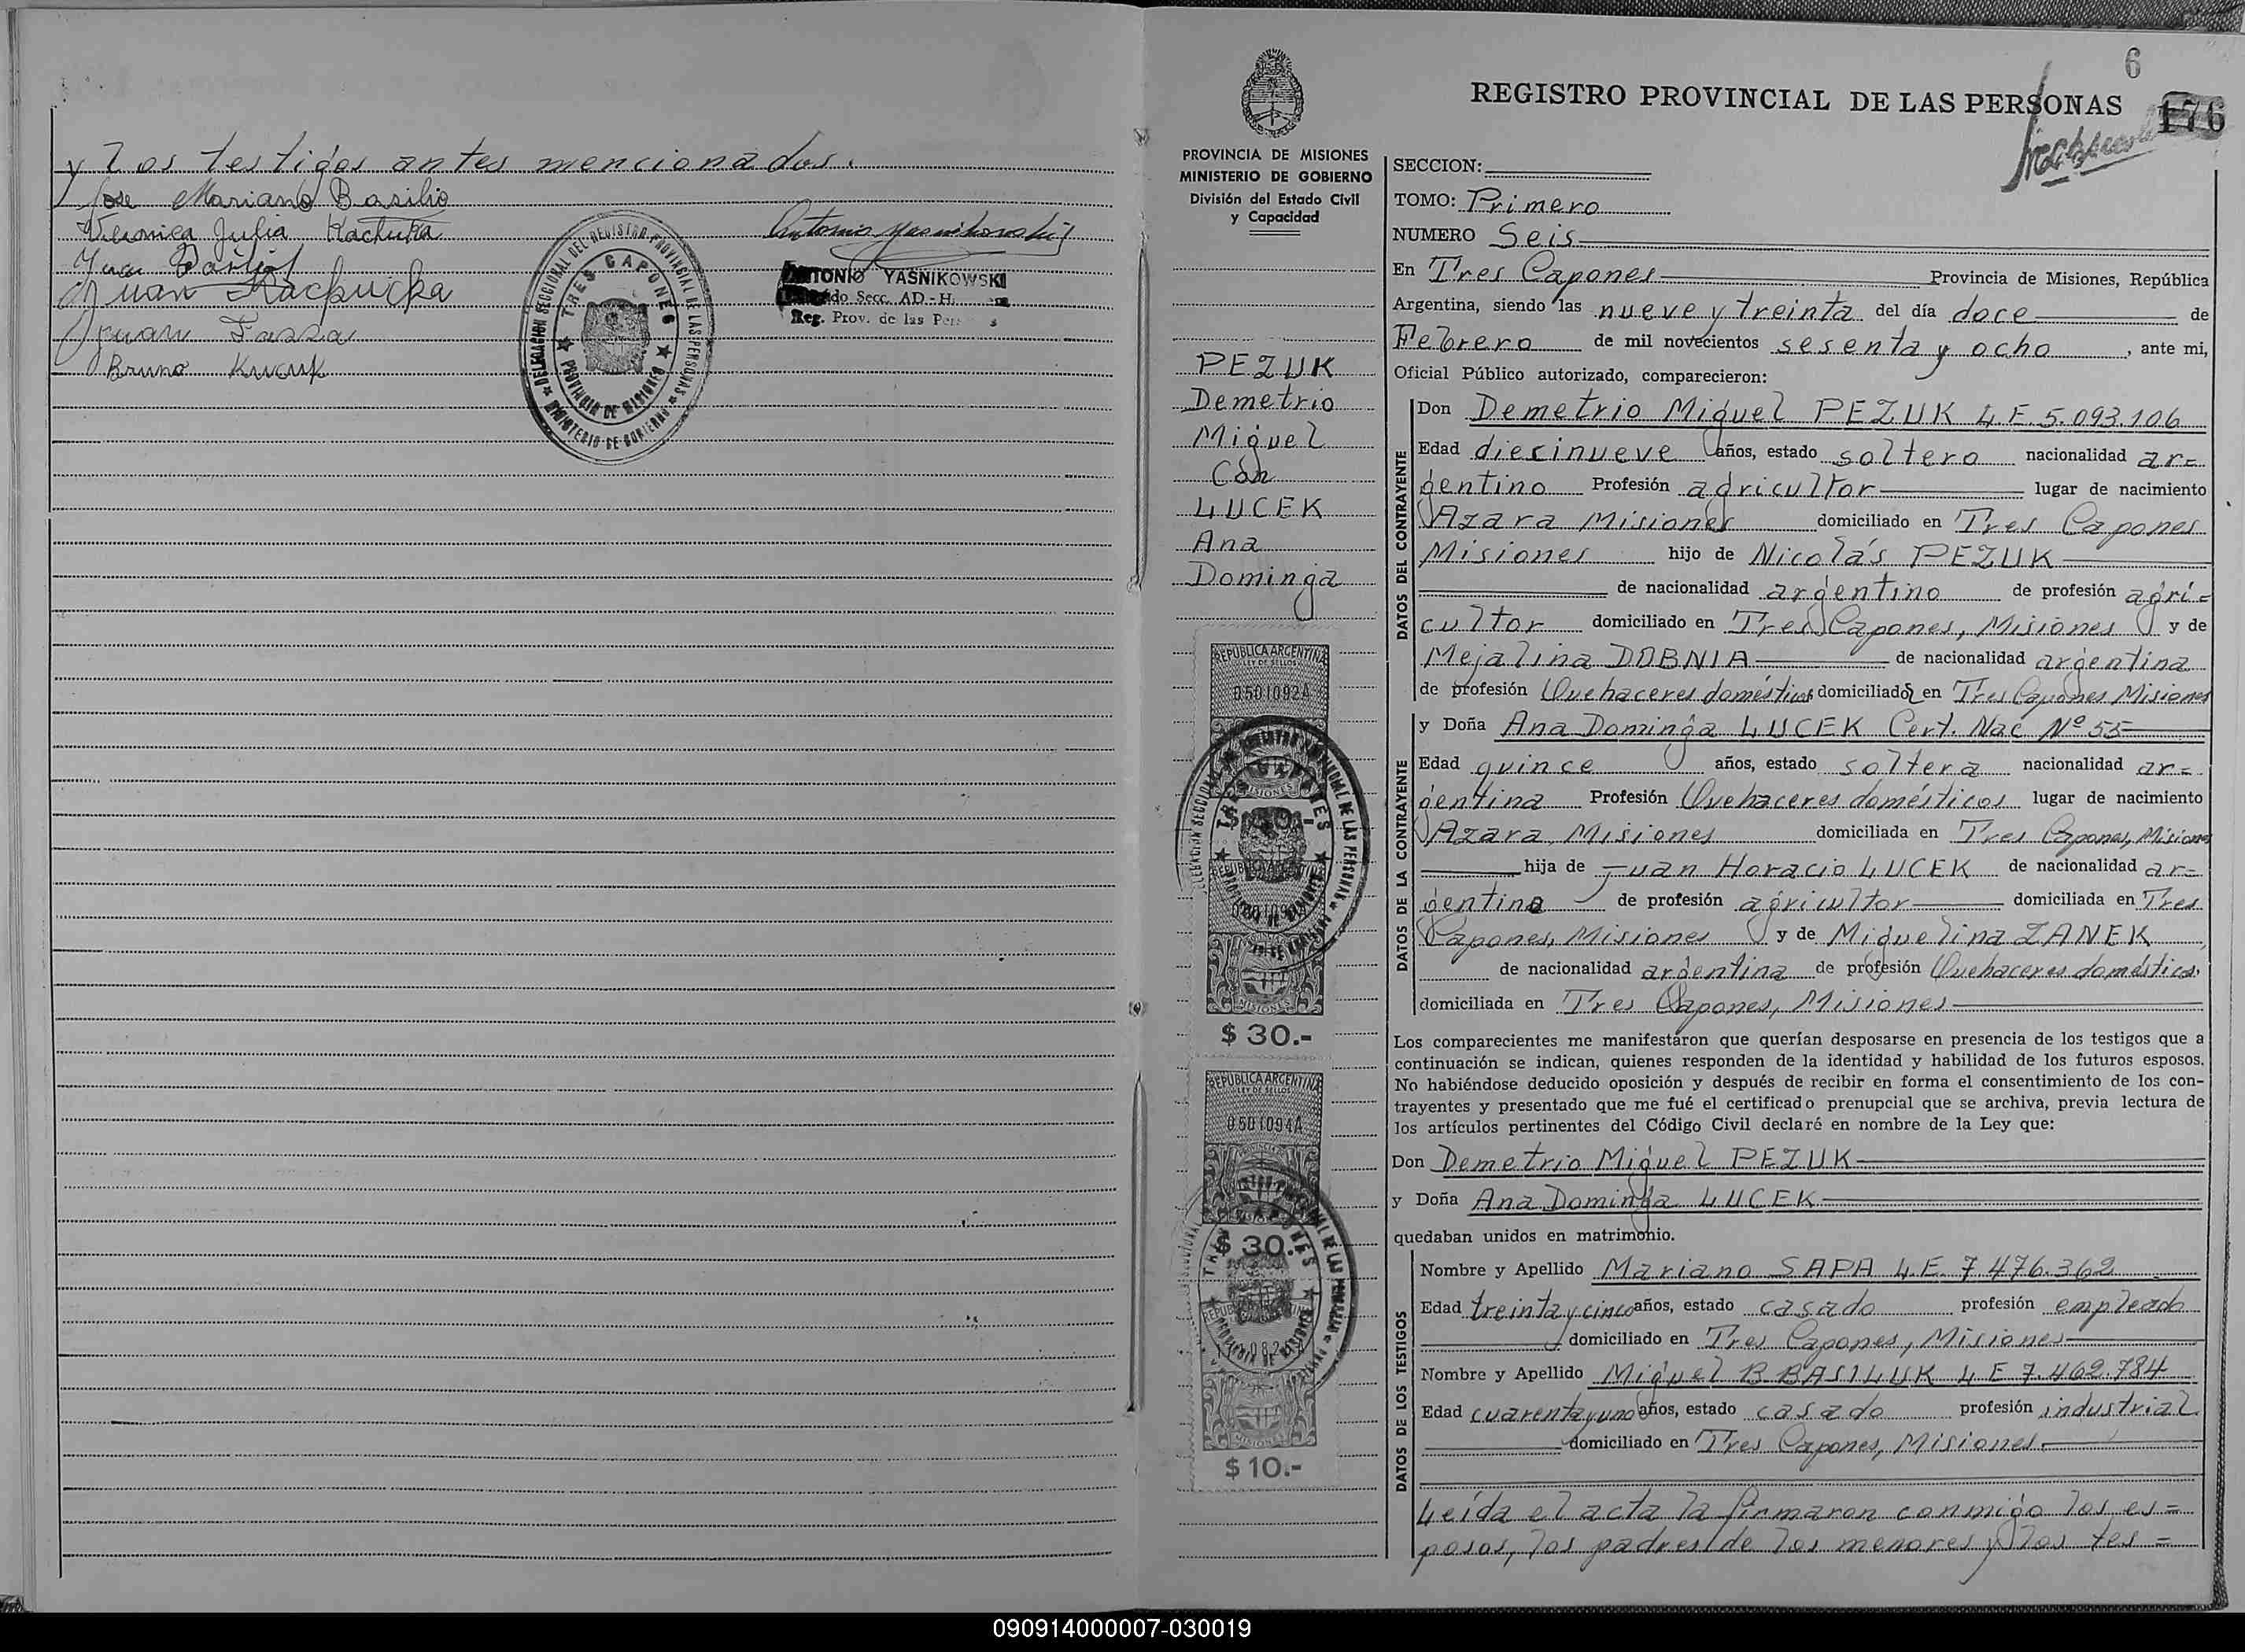 y los testigos antes mencionados.
Jose Mariano Basilio
Veronica Julia Kachuka
Juan
Juan Kachuka
Juan Fassa
Bruno Kucuk
Antonio Yasnikowski
ANTONIO YASNIKOWSKI
Secc. AD-H.
Reg. Prov. de las Pers
DELEGACION SECCIONAL DEL REGISTRO PROVINCIAL DE LAS PERSONAS
MINISTERIO DE GOBIERNO
TRES CAPONES
PROVINCIA DE MISIONES
6
REGISTRO PROVINCIAL DE LAS PERSONAS
176
PROVINCIA DE MISIONES
MINISTERIO DE GOBIERNO
División del Estado Civil
y Capacidad
PEZUK
Demetrio
Miguel
Con
LUCEK
Ana
Dominga
REPUBLICA ARGENTINA
LEY DE SELLOS
0501092A
MISIONES
$ 30.-
REPUBLICA ARGENTINA
LEY DE SELLOS
0501094A
$ 30.-
MISIONES
$ 10.-
SECCION:
TOMO: Primero
NUMERO Seis
En Tres Capones Provincia de Misiones, República
Argentina, siendo las nueve y treinta del día doce de
Febrero de mil novecientos sesenta y ocho, ante mi,
Oficial Público autorizado, comparecieron:
DATOS DEL CONTRAYENTE
Don Demetrio Miguel PEZUK L.E. 5.093.106
Edad diecinueve años, estado soltero nacionalidad ar=
gentino Profesión agricultor lugar de nacimiento
Azara Misiones domiciliado en Tres Capones
Misiones hijo de Nicolás PEZUK
de nacionalidad argentino de profesión agri=
cultor domiciliado en Tres Capones, Misiones y de
Mejalina DOBNIA de nacionalidad argentina
de profesión Quehaceres domésticos domiciliados en Tres Capones Misiones
DATOS DE LA CONTRAYENTE
y Doña Ana Dominga LUCEK Cert. Nac Nº 55
Edad quince años, estado soltera nacionalidad ar=
gentina Profesión Quehaceres domésticos lugar de nacimiento
Azara, Misiones domiciliada en Tres Capones, Misiones
hija de Juan Horacio LUCEK de nacionalidad ar=
gentino de profesión agricultor domiciliada en Tres
Capones, Misiones y de Miguelina ZANEK
de nacionalidad argentina de profesión Quehaceres domésticos
domiciliada en Tres Capones, Misiones
Los comparecientes me manifestaron que querían desposarse en presencia de los testigos que a
continuación se indican, quienes responden de la identidad y habilidad de los futuros esposos.
No habiéndose deducido oposición y después de recibir en forma el consentimiento de los con-
trayentes y presentado que me fué el certificado prenupcial que se archiva, previa lectura de
los artículos pertinentes del Código Civil declaré en nombre de la Ley que:
Don Demetrio Miguel PEZUK
y Doña Ana Dominga LUCEK
quedaban unidos en matrimonio.
DATOS DE LOS TESTIGOS
Nombre y Apellido Mariano SAPA L.E. 7.476.362
Edad treinta y cinco años, estado casado profesión empleado
domiciliado en Tres Capones, Misiones
Nombre y Apellido Miguel B BASILUK L E 7.462.784
Edad cuarenta y uno años, estado casado profesión industrial
domiciliado en Tres Capones, Misiones.
Leída el acta la firmaron conmigo los es=
posos, los padres de los menores y los tes=
090914000007-030019